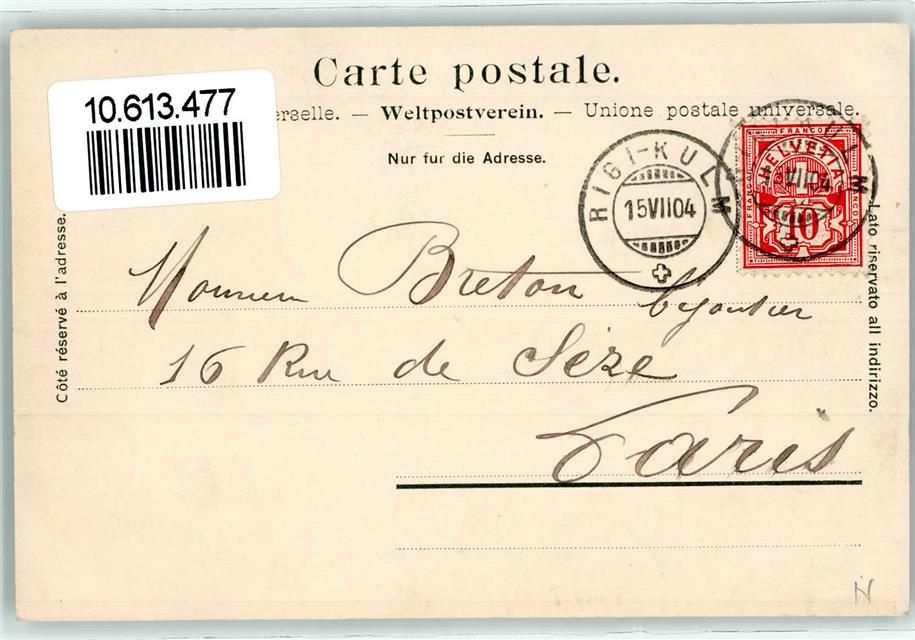 Carte postale.
10.613.477
erselle. — Weltpostverein. — Unione postale universale.
Nur fur die Adresse.
RIGI-KULM
15VII04
FRANCO
HELVETIA
FRANCO
FRANCO
10
VII04
Côté réservé à l'adresse.
Lato riservato all indirizzo.
Monsieur Breton bijoutier
16 Rue de Sèze
Paris
N